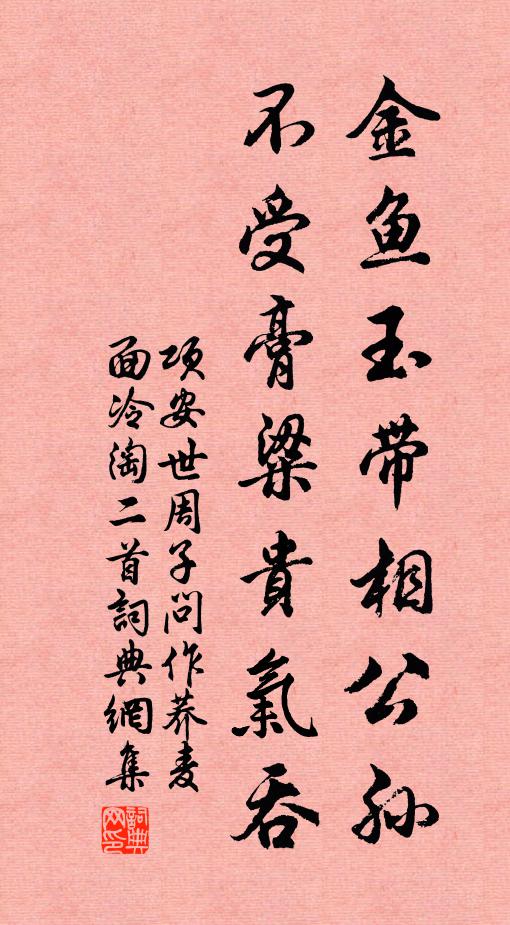 金鱼玉带相公孙
不受膏粱貴氣吞
项安世周子问作荞麦
面冷淘二首詞典網集
詞典网印